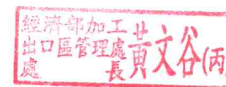 經濟部加工
出口區管理處
處長黃文谷(丙)